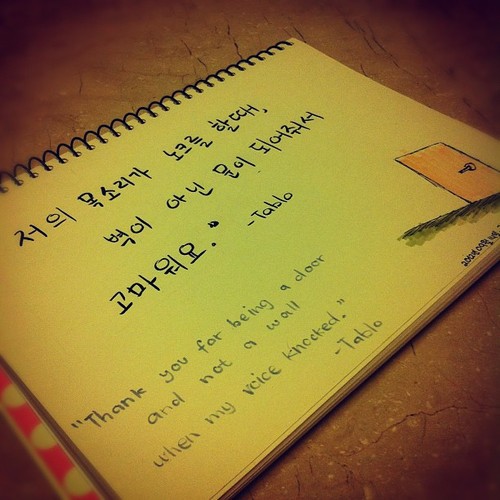 저의 목소리가 노크를 할때,
벽이 아닌 문이 되어줘서
고마워요."
-Tablo
"Thank you for being a door
and not a wall
when my voice knocked."
-Tablo